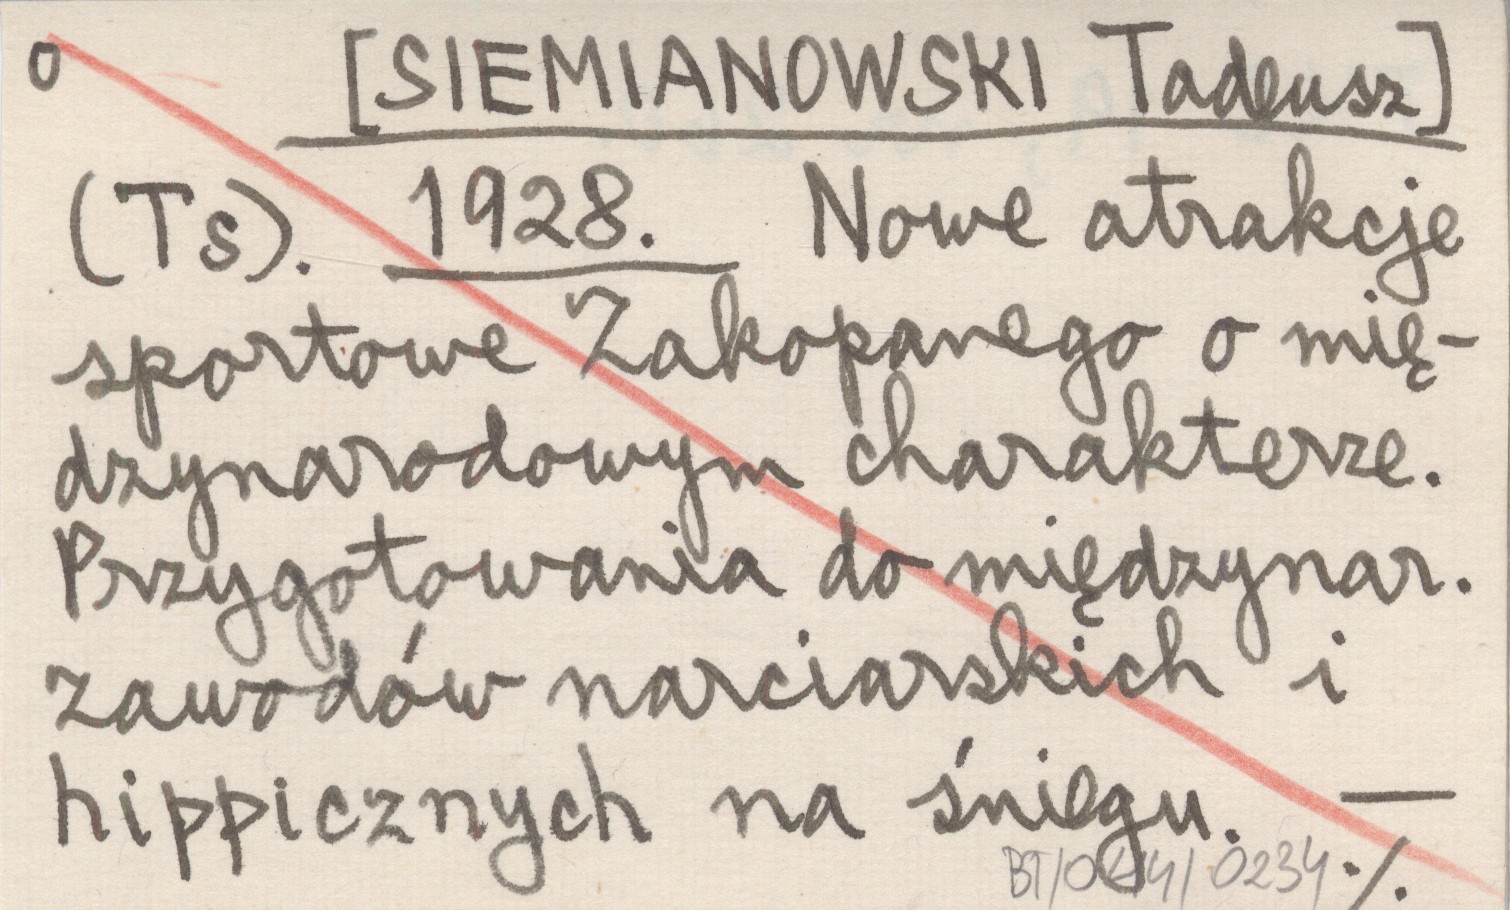 o [SIEMIANOWSKI Tadeusz]
(Ts). 1928. Nowe atrakcje
sportowe Zakopanego o mię-
dzynarodowym charakterze.
Przygotowania do międzynar.
zawodów narciarskich i
hippicznych na śniegu. —
0234 ./.